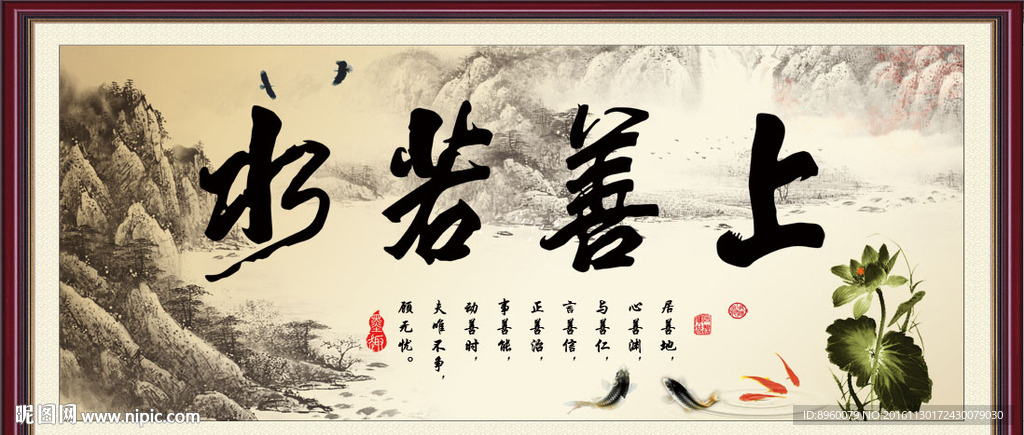 上善若水
居善地，
心善渊，
与善仁，
言善信，
正善治，
事善能，
动善时，
夫唯不争，
顾无忧。
昵图网 www.nipic.com
ID:8960079 NO:20161130172430079030